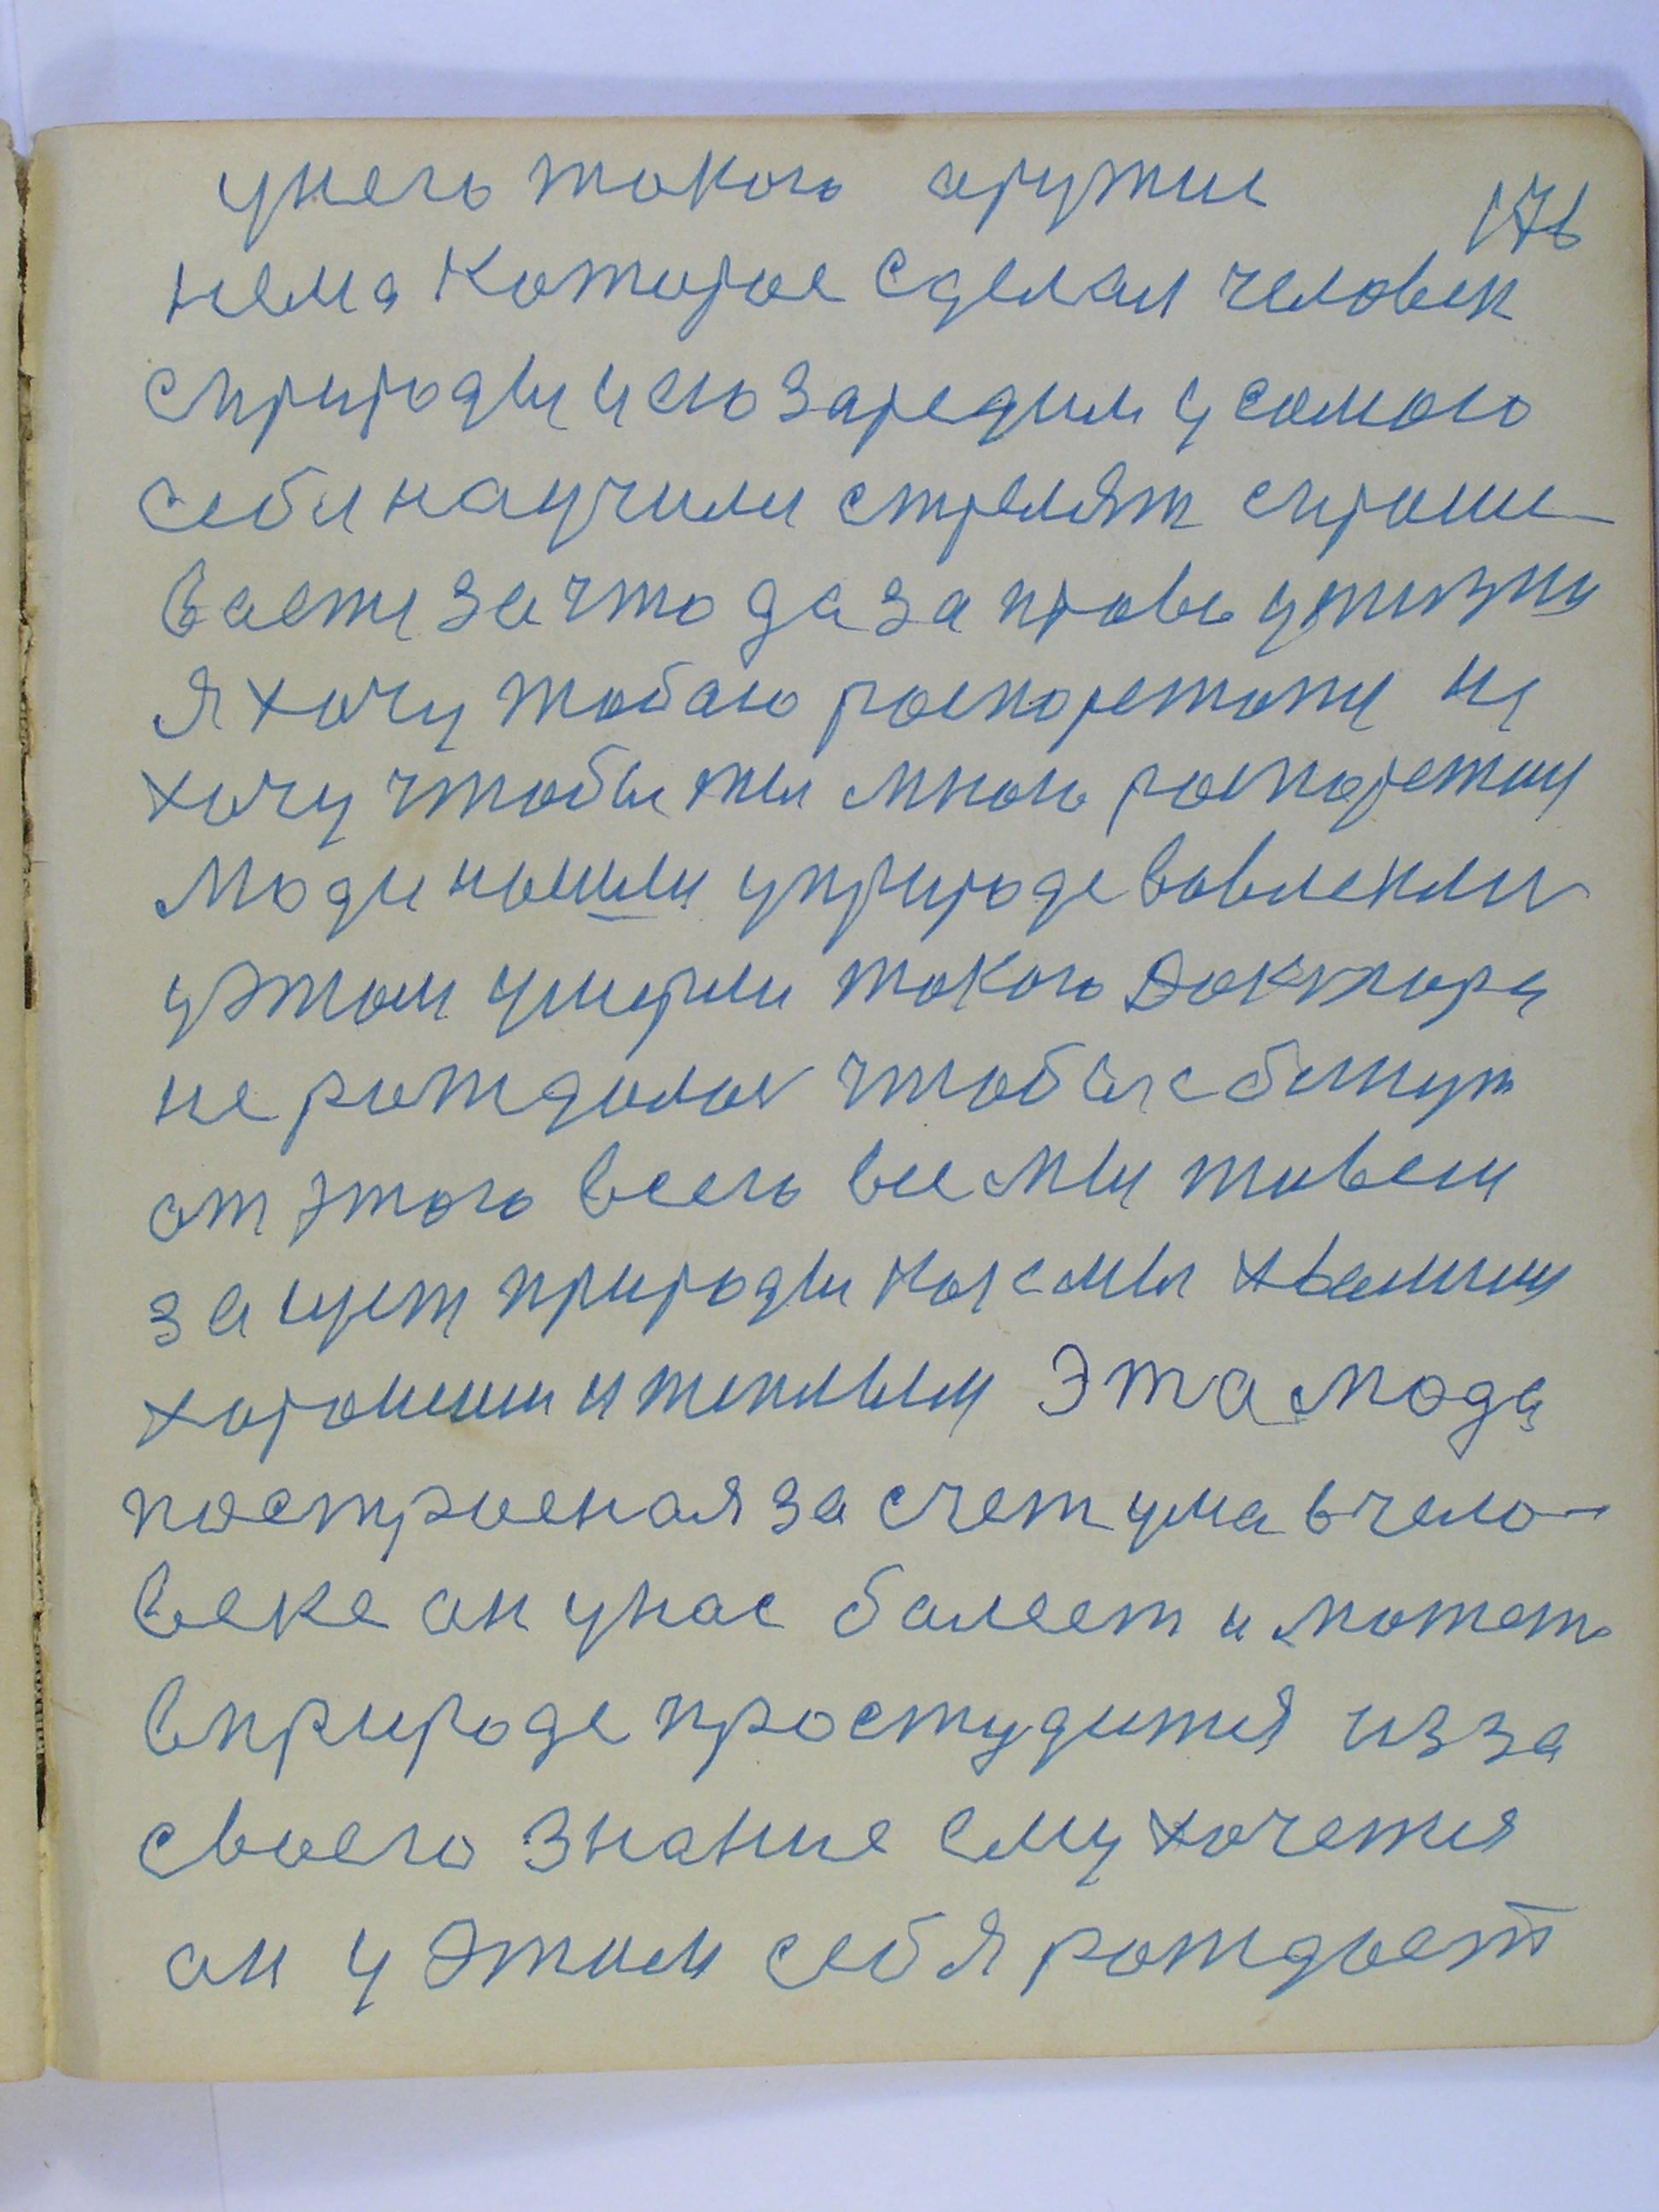 унего токого аружие
176
нема которое сделал человек
сприроды и его заредил у самого
себя научили стрелят спраши-
ваети за что да за право у жизни
я хочу тобаю роспорежатъ ни
хочу чтобы ты мною роспорежал
люди нашли уприроде вовлекли
у этом умерли токого Доктора
не рождалос чтобы збинут
от этого всего все мы живем
за щет природы нас мы хвалим
хорошим и теплым Эта мода
построеная за счет ума в чело-
веке он унас балеет и может
в природе простудится из за
своего знание ему хочется
он у этим себя рождает